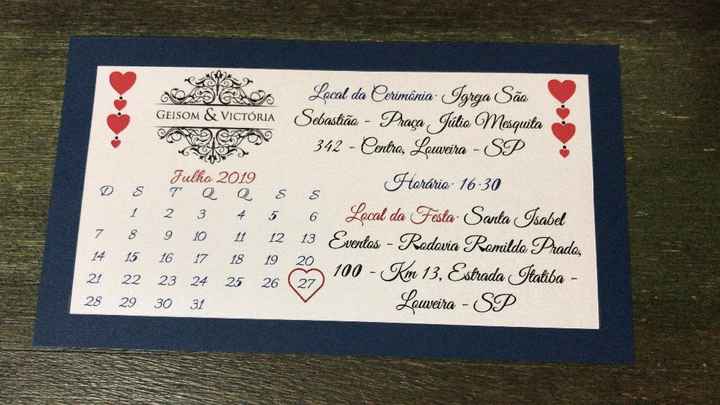 GEISOM & VICTÓRIA
Julho 2019
D S T Q Q S S
1 2 3 4 5 6
7 8 9 10 11 12 13
14 15 16 17 18 19 20
21 22 23 24 25 26 27
28 29 30 31
Local da Cerimônia: Igreja São
Sebastião - Praça Júlio Mesquita
342 - Centro, Louveira - SP
Horário: 16:30
Local da Festa: Santa Isabel
Eventos - Rodovia Romildo Prado,
100 - Km 13, Estrada Itatiba -
Louveira - SP